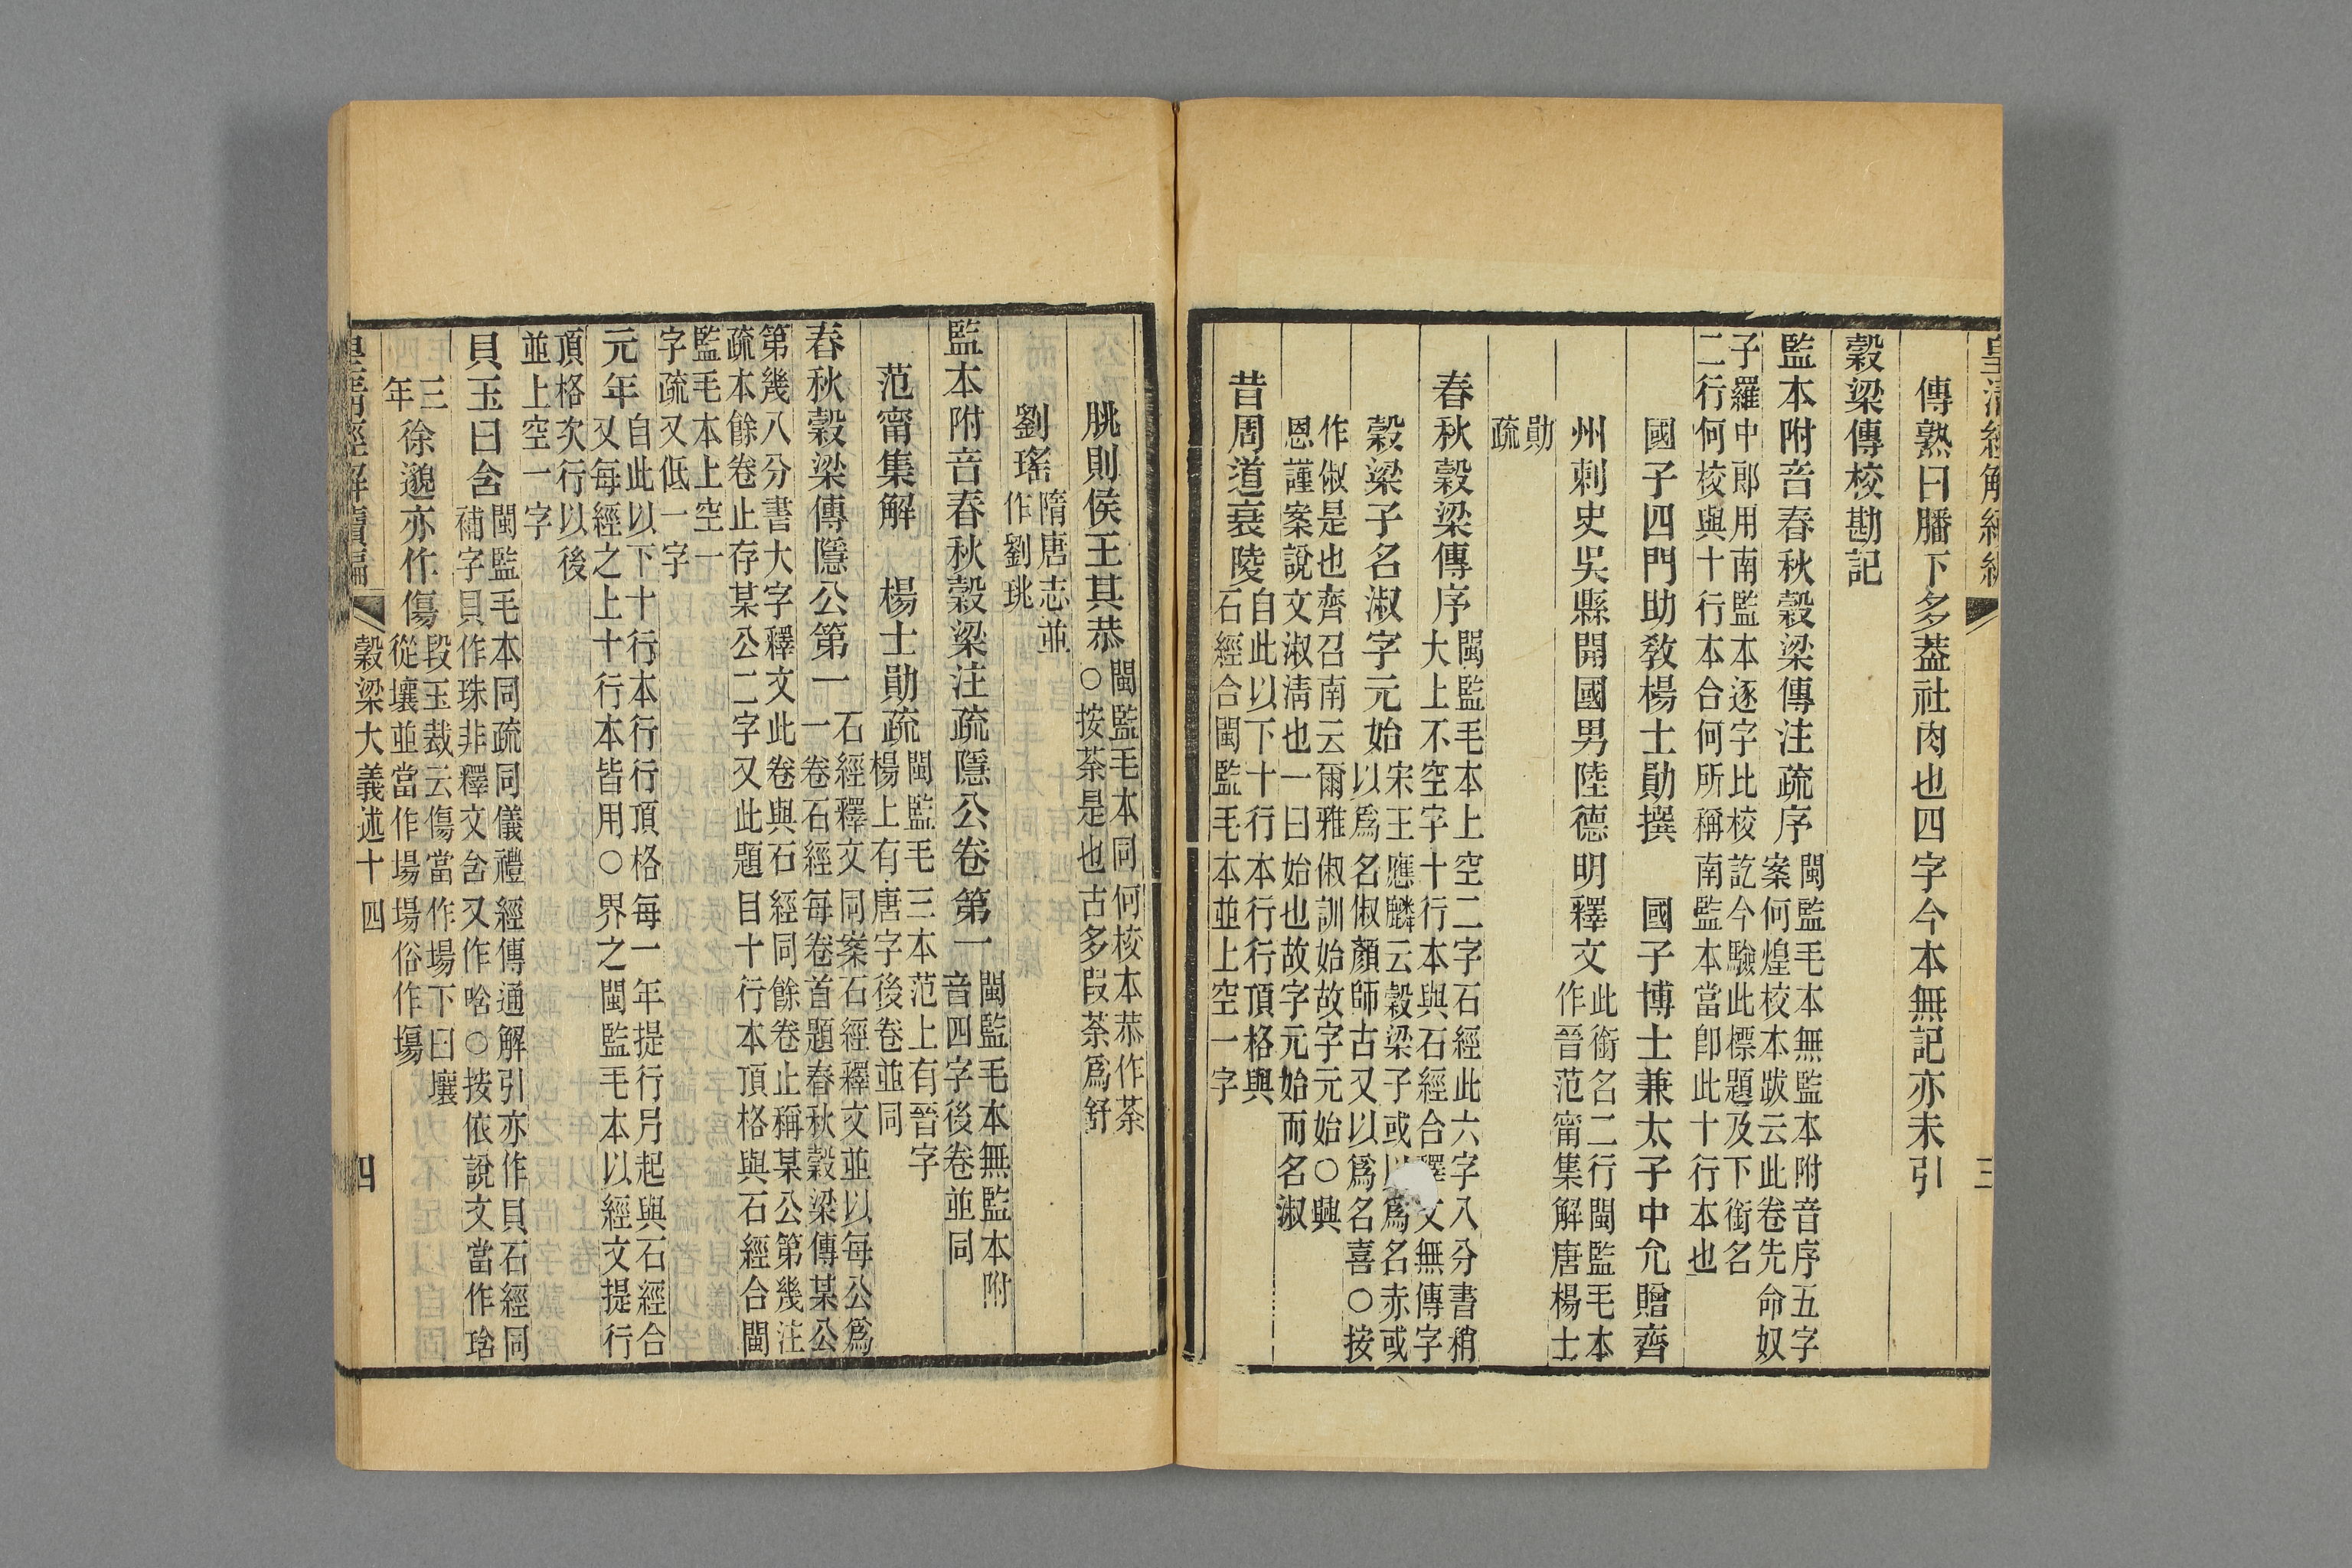 皇清經解續編
三
傳熟曰膰下多葢社肉也四字今本無記亦未引
穀梁傳校勘記
監本附音春秋穀梁傳注疏序
閩監毛本無監本附音序五字
案何煌校本跋云此卷先命奴
子羅中郎用南監本逐字比校訖今驗此標題及下銜名
二行何校與十行本合何所稱南監本當卽此十行本也
國子四門助敎楊士勛撰 國子博士兼太子中允贈齊
州刺史吳縣開國男陸德明釋文
此銜名二行閩監毛本
作晉范甯集解唐楊士
勛
疏
春秋穀梁傳序
閩監毛本上空二字石經此六字八分書稍
大上不空字十行本與石經合釋文無傳字
穀梁子名淑字元始
宋王應麟云穀梁子或以爲名赤或
以爲名俶顏師古又以爲名喜○按
作俶是也齊召南云爾雅俶訓始故字元始○興
恩謹案說文淑淸也一曰始也故字元始而名淑
昔周道衰陵
自此以下十行本行行頂格與
石經合閩監毛本並上空一字
朓則侯王其恭
閩監毛本同何校本恭作荼
○按荼是也古多叚荼爲舒
劉瑤
隋唐志並
作劉珧
監本附音春秋穀梁注疏隱公卷第一
閩監毛本無監本附
音四字後卷並同
范甯集解 楊士勛疏
閩監毛三本范上有晉字
楊上有唐字後卷並同
春秋穀梁傳隱公第一
石經釋文同案石經釋文並以每公爲
一卷石經每卷首題春秋穀梁傳某公
第幾八分書大字釋文此卷與石經同餘卷止稱某公第幾注
疏本餘卷止存某公二字又此題目十行本頂格與石經合閩
監毛本上空一
字疏又低一字
元年
自此以下十行本行行頂格每一年提行另起與石經合
又每經之上十行本皆用○界之閩監毛本以經文提行
頂格次行以後
並上空一字
貝玉曰含
閩監毛本同疏同儀禮經傳通解引亦作貝石經同
補字貝作珠非釋文含又作唅○按依說文當作琀
三
年
徐邈亦作傷
段玉裁云傷當作場下曰壤
從壤並當作場場俗作塲
皇淸經解續編
穀梁大義述十四
四